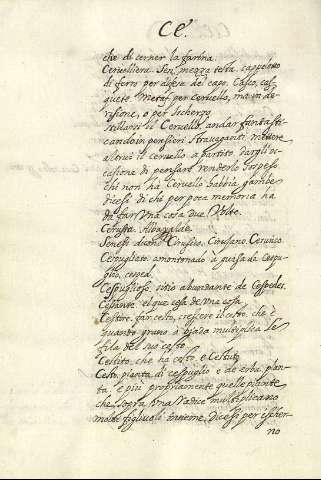 Ce.
che di cerner la farina.
Cervelliera. Sen. mezza testa. cappelletto
di ferro per difesa del capo. Casco, cas-
quete. Metaf. per cervello, ma in de-
risione, o per ischerzo
stillarsi il Cervello, andar fantasti-
cando in pensieri stravaganti. mettere
altrui il cervello a partito. Dargli oc-
casione di pensar, renderlo sospeso
chi non hà Cervello habbia gambe
dicesi di chi per poca memoria ha
da far una cosa due Volte.
Cerussa. Albayalde.
Senesi dicono Cirusico. Cirusano.
Cespugliato. amontonado à guisa da Cespu-
glio, cesped.
Cespuglioso, sitio abundante de Cespedes.
Cessante. el que cesa de una cosa.
Cestire, far cesto, crescere il cesto, che è
quando grano ò biada multiplica le
fila del suo cesto.
Cestito, che ha cesto, e Cestuto,
Cesto, pianta di cespuglio e de erba, plan-
ta e più propriamente quelle piante
che sopra una radice multiplicano
molti figliuoli insieme, dicesi per ischer-
no